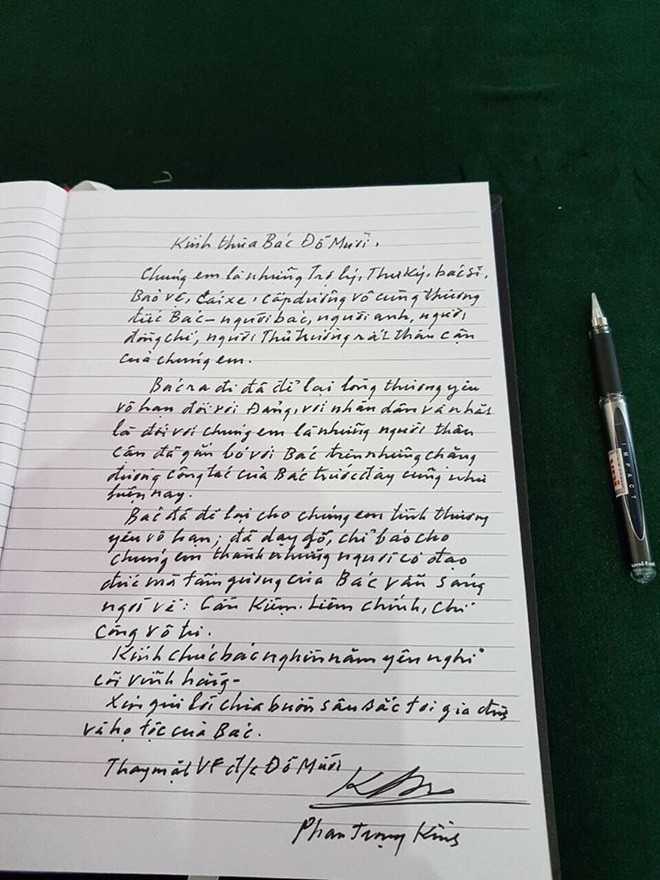 Kính thưa Bác Đỗ Mười,
Chúng em là những Trợ lý, Thư ký, bác sĩ,
Bảo vệ, Lái xe, cấp dưỡng vô cùng thương
tiếc Bác - người bác, người anh, người
đồng chí, người Thủ trưởng rất thân cận
của chúng em.
Bác ra đi đã để lại lòng thương yêu
vô hạn đối với Đảng, với nhân dân và nhất
là đối với chúng em là những người thân
cận đã gắn bó với Bác trên những chặng
đường công tác của Bác trước đây cũng như
hiện nay.
Bác đã để lại cho chúng em tình thương
yêu vô hạn; đã dạy dỗ, chỉ bảo cho
chúng em thành những người có đạo
đức mà tấm gương của Bác vẫn sáng
ngời về: Cần Kiệm. Liêm chính, chí
công vô tư.
Kính chúc bác nghìn năm yên nghỉ
cõi vĩnh hằng -
Xin gửi lời chia buồn sâu sắc tới gia đình
và họ tộc của Bác.
Thay mặt VP đ/c Đỗ Mười
Phan Trọng Kính
IMPACT
uni-ball